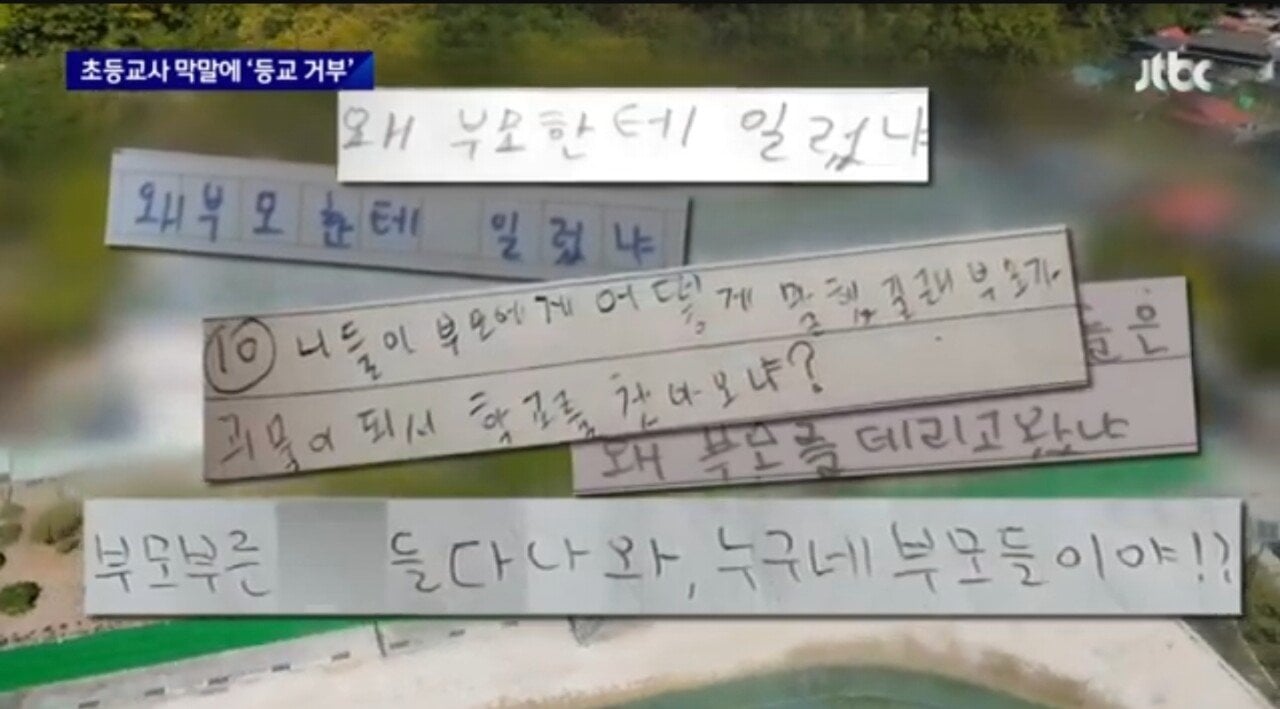 초등교사 막말에 ‘등교 거부’
jtbc
왜 부모한테 일렀냐
왜 부모한테 일렀냐
⑩ 니들이 부모에게 어떻게 말했길래 부모가
괴물이 되서 학교를 찾아보냐?
들은
왜 부모를 데리고왔냐
부모부른 들다나와, 누구네부모들이야!?